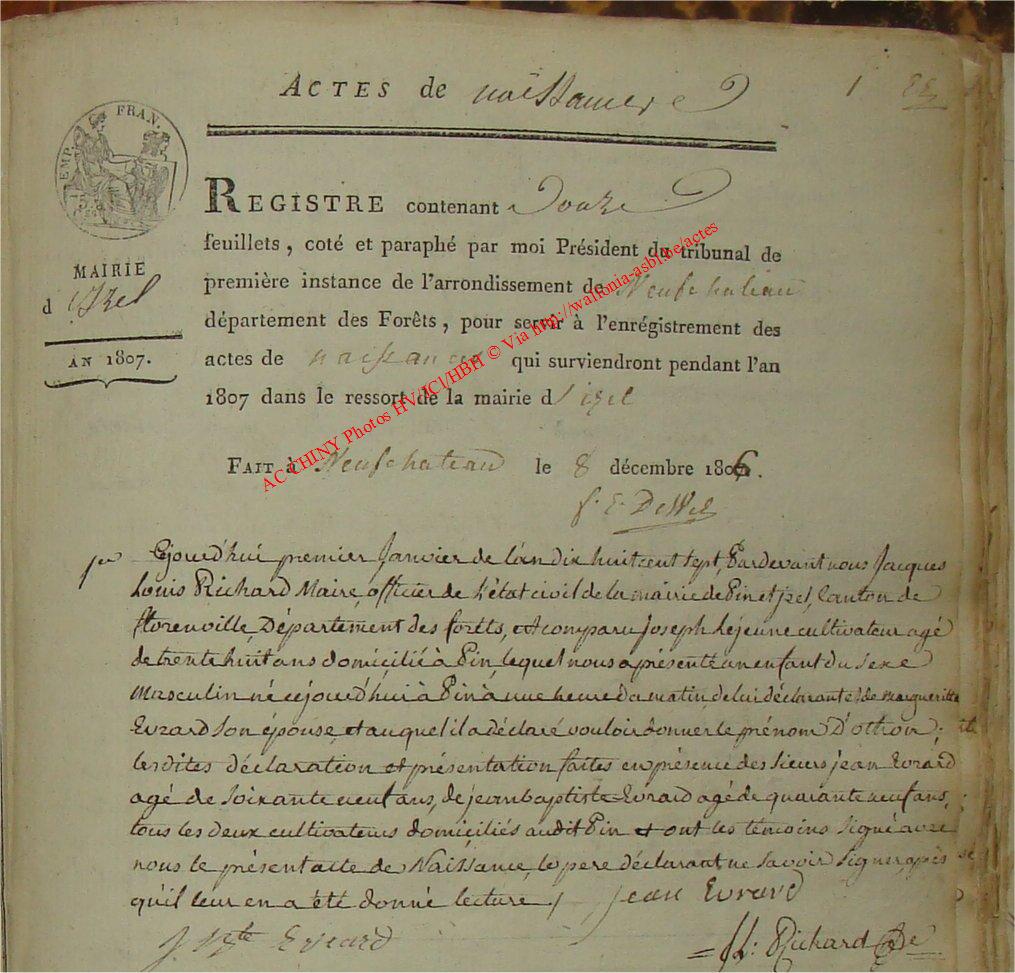 ACTES de naissances
1
EMP. FRAN.
REGISTRE contenant Douze
feuillets, coté et paraphé par moi Président du tribunal de
première instance de l'arrondissement de Neufchateau
département des Forêts, pour servir à l'enrégistrement des
actes de naissances qui surviendront pendant l'an
1807 dans le ressort de la mairie d'izel
MAIRIE
d'izel
AN 1807.
FAIT à Neufchateau le 8 décembre 1806.
AC CHINY Photos HV/JCl/HBH © Via http://wallonia-asbl.be/actes
1er Cejourd'hui premier Janvier de l'an dix huit cent sept, Pardevant nous Jacques
Louis Richard Maire, officier de L'état civil de la mairie de Pin et izel, Canton de
florenville, Département des forêts, est comparu Joseph Lejeune cultivateur agé
de trente huit ans domicilié à Pin, lequel nous a présenté un enfant du sexe
Masculin né cejourd'hui à Pin à une heure du matin, de lui déclarant et de Margueritte
Evrard son épouse, et auquel il a déclaré vouloir donner le prénom D'othon;
lesdites déclaration et présentation faites en présence des sieurs jean Evrard
agé de soixante neuf ans, de jean baptiste Evrard agé de quarante neuf ans,
tous les deux cultivateurs domiciliés audit Pin et ont les témoins signé avec
nous le présent acte de Naissance, le pere déclarant ne savoir signer, après
qu'il leur en a été donné lecture /. jean Evrard
J. Bte Evrard
JL: Richard